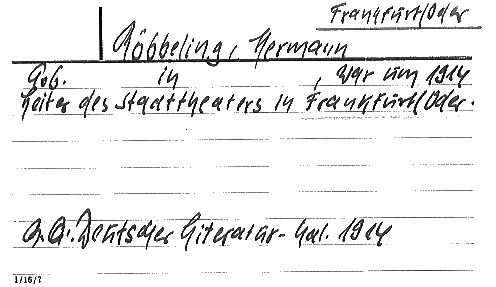 Frankfurt/Oder
Röbbeling, Hermann
Geb. in , war um 1914
Leiter des Stadttheaters in Frankfurt/Oder.
A.a. Deutscher Literatur-Kal. 1914
1/16/7